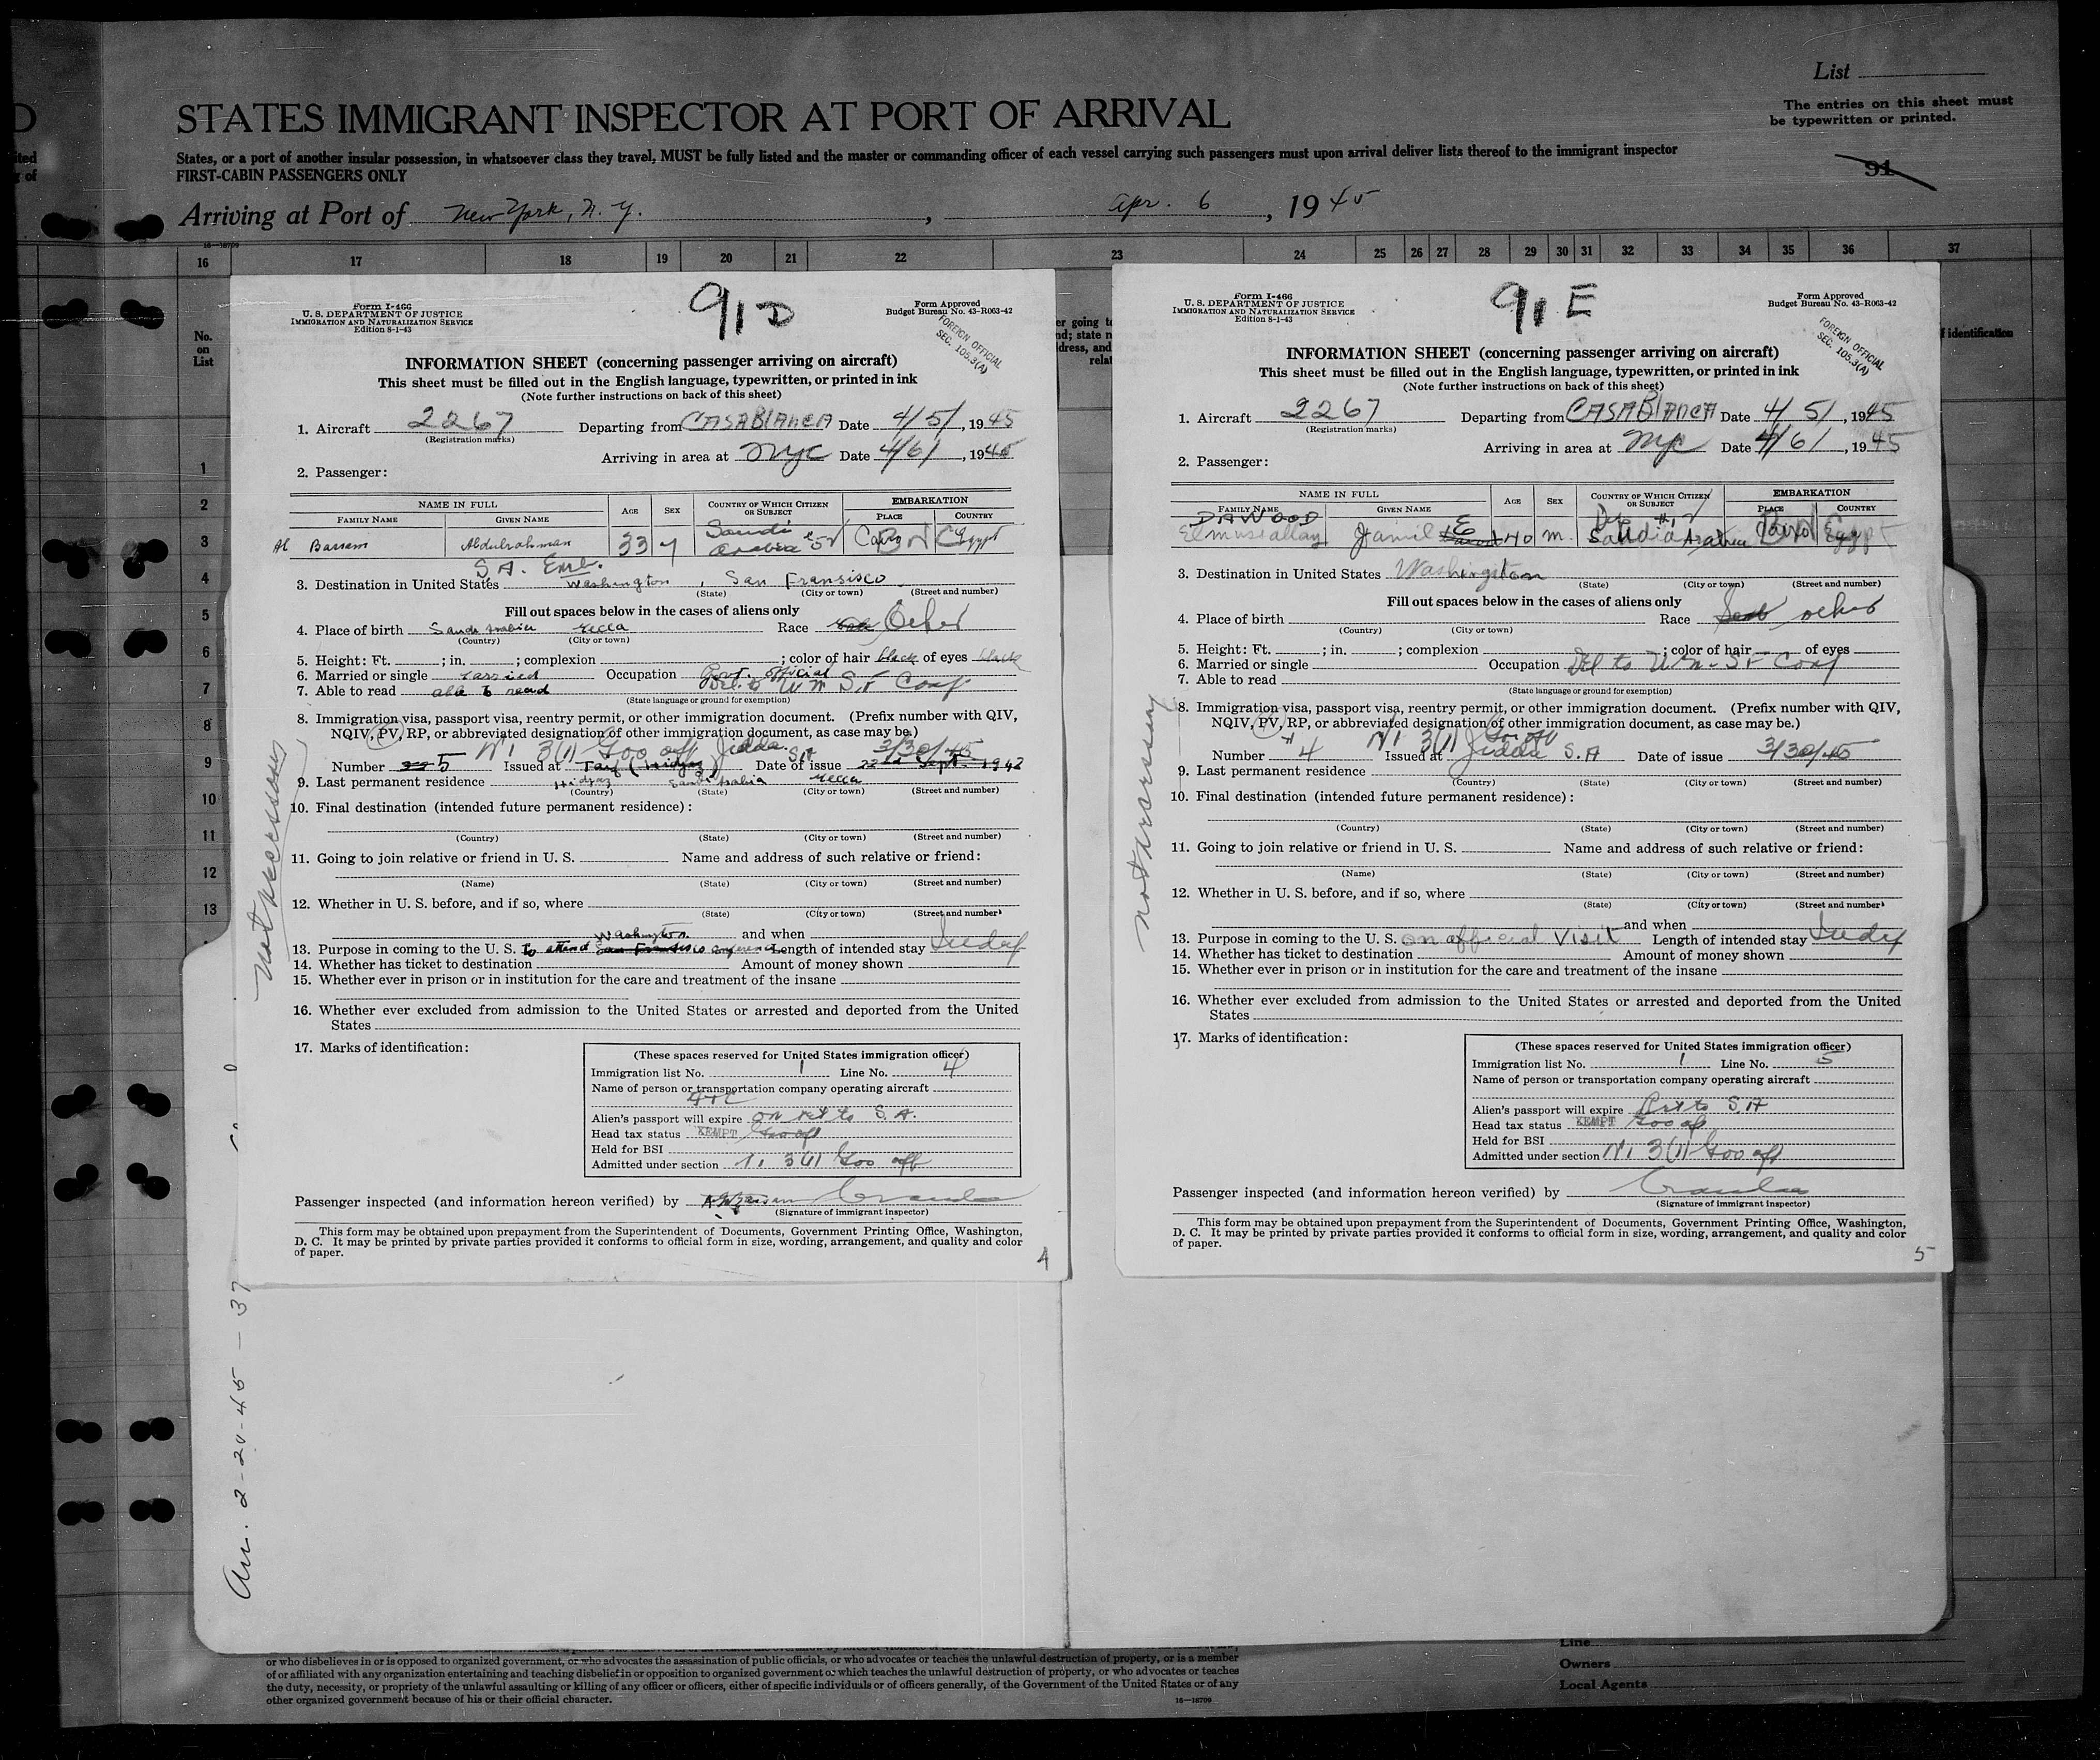 List
STATES IMMIGRANT INSPECTOR AT PORT OF ARRIVAL
The entries on this sheet must
be typewritten or printed.
States, or a port of another insular possession, in whatsoever class they travel, MUST be fully listed and the master or commanding officer of each vessel carrying such passengers must upon arrival deliver lists thereof to the immigrant inspector
FIRST-CABIN PASSENGERS ONLY
91
Arriving at Port of New York, N. Y. , Apr. 6 , 1945
16 17 18 19 20 21 22 23 24 25 26 27 28 29 30 31 32 33 34 35 36 37
No.
on
List
1
2
3
4
5
6
7
8
9
10
11
12
13
Form I-466
U. S. DEPARTMENT OF JUSTICE
IMMIGRATION AND NATURALIZATION SERVICE
Edition 8-1-43
91 D
Form Approved
Budget Bureau No. 43-R063-42
FOREIGN OFFICIAL
SEC. 105.3(A)
INFORMATION SHEET (concerning passenger arriving on aircraft)
This sheet must be filled out in the English language, typewritten, or printed in ink
(Note further instructions on back of this sheet)
1. Aircraft 2267 Departing from CASABlAncA Date 4/5/, 1945
(Registration marks)
Arriving in area at nyc Date 4/6/, 1945
2. Passenger:
NAME IN FULL AGE SEX COUNTRY OF WHICH CITIZEN OR SUBJECT EMBARKATION
FAMILY NAME GIVEN NAME PLACE COUNTRY
Al Bassam Abdulrahman 33 Saudi Arabia Cairo Egypt
S A. Emb.
3. Destination in United States Washington, San Fransisco
(State) (City or town) (Street and number)
Fill out spaces below in the cases of aliens only
4. Place of birth Saudi Arabia Mecca Race Other
(Country) (City or town)
5. Height: Ft. ; in. ; complexion ; color of hair black of eyes black
6. Married or single married Occupation Govt. official
7. Able to read able to read Del. to U N S F Conf.
(State language or ground for exemption)
8. Immigration visa, passport visa, reentry permit, or other immigration document. (Prefix number with QIV,
NQIV, PV, RP, or abbreviated designation of other immigration document, as case may be.)
3(1) Gov off Jidda S A 3/30/45
Number 5 Issued at Date of issue 22nd Sept. 1942
9. Last permanent residence Hidjaz Saudi Arabia Mecca
(Country) (State) (City or town) (Street and number)
10. Final destination (intended future permanent residence):
(Country) (State) (City or town) (Street and number)
11. Going to join relative or friend in U. S. Name and address of such relative or friend:
(Name) (State) (City or town) (Street and number)
12. Whether in U. S. before, and if so, where
(State) (City or town) (Street and number)
Washington and when
13. Purpose in coming to the U. S. to attend San Fransisco conference Length of intended stay Indef
14. Whether has ticket to destination Amount of money shown
15. Whether ever in prison or in institution for the care and treatment of the insane
16. Whether ever excluded from admission to the United States or arrested and deported from the United
States
17. Marks of identification:
(These spaces reserved for United States immigration officer)
Immigration list No. 1 Line No. 4
Name of person or transportation company operating aircraft
ATC
Alien's passport will expire on ret to S. A.
Head tax status EXEMPT Gov off
Held for BSI
Admitted under section 3(1) Gov off
Passenger inspected (and information hereon verified) by
(Signature of immigrant inspector)
This form may be obtained upon prepayment from the Superintendent of Documents, Government Printing Office, Washington,
D. C. It may be printed by private parties provided it conforms to official form in size, wording, arrangement, and quality and color
of paper.
4
not necessary
Form I-466
U. S. DEPARTMENT OF JUSTICE
IMMIGRATION AND NATURALIZATION SERVICE
Edition 8-1-43
91 E
Form Approved
Budget Bureau No. 43-R063-42
FOREIGN OFFICIAL
SEC. 105.3(A)
INFORMATION SHEET (concerning passenger arriving on aircraft)
This sheet must be filled out in the English language, typewritten, or printed in ink
(Note further instructions on back of this sheet)
1. Aircraft 2267 Departing from CASABlAncA Date 4/5/, 1945
(Registration marks)
Arriving in area at nyc Date 4/6/, 1945
2. Passenger:
NAME IN FULL AGE SEX COUNTRY OF WHICH CITIZEN OR SUBJECT EMBARKATION
FAMILY NAME GIVEN NAME PLACE COUNTRY
DAWOOD
Elmusallay Jamil E 40 m. Saudia Arabia Cairo Egypt
3. Destination in United States Washington
(State) (City or town) (Street and number)
Fill out spaces below in the cases of aliens only
4. Place of birth Race other
(Country) (City or town)
5. Height: Ft. ; in. ; complexion ; color of hair of eyes
6. Married or single Occupation Del to U N S F Conf
7. Able to read
(State language or ground for exemption)
8. Immigration visa, passport visa, reentry permit, or other immigration document. (Prefix number with QIV,
NQIV, PV, RP, or abbreviated designation of other immigration document, as case may be.)
3(1) Gov off
Number #4 Issued at Jidda S. A Date of issue 3/30/45
9. Last permanent residence
(Country) (State) (City or town) (Street and number)
10. Final destination (intended future permanent residence):
(Country) (State) (City or town) (Street and number)
11. Going to join relative or friend in U. S. Name and address of such relative or friend:
(Name) (State) (City or town) (Street and number)
12. Whether in U. S. before, and if so, where
(State) (City or town) (Street and number)
and when
13. Purpose in coming to the U. S. on official Visit Length of intended stay Indef
14. Whether has ticket to destination Amount of money shown
15. Whether ever in prison or in institution for the care and treatment of the insane
16. Whether ever excluded from admission to the United States or arrested and deported from the United
States
17. Marks of identification:
(These spaces reserved for United States immigration officer)
Immigration list No. 1 Line No. 5
Name of person or transportation company operating aircraft
Alien's passport will expire Ret to S A
Head tax status EXEMPT Gov off
Held for BSI
Admitted under section 3(1) Gov off
Passenger inspected (and information hereon verified) by
(Signature of immigrant inspector)
This form may be obtained upon prepayment from the Superintendent of Documents, Government Printing Office, Washington,
D. C. It may be printed by private parties provided it conforms to official form in size, wording, arrangement, and quality and color
of paper.
5
not necessary
2-20-45 - 37
or who disbelieves in or is opposed to organized government, or who advocates the assassination of public officials, or who advocates or teaches the unlawful destruction of property, or is a member
of or affiliated with any organization entertaining and teaching disbelief in or opposition to organized government or which teaches the unlawful destruction of property, or who advocates or teaches
the duty, necessity, or propriety of the unlawful assaulting or killing of any officer or officers, either of specific individuals or of officers generally, of the Government of the United States or of any
other organized government because of his or their official character.
16-18709
Line
Owners
Local Agents